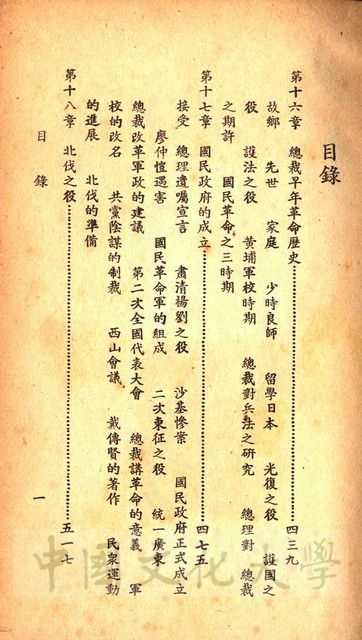 目錄
第十六章　總裁早年革命歷史……四三九
故鄉　先世　家庭　少時良師　留學日本　光復之役　護國之
役　護法之役　黃埔軍校時期　總裁對兵法之研究　總理對　總裁
之期許　國民革命之三時期
第十七章　國民政府的成立……四七五
接受　總理遺囑宣言　肅清楊劉之役　沙基慘案　國民政府正式成立
廖仲愷遇害　國民革命軍的組成　二次東征之役　統一廣東
總裁改革軍政的建議　第二次全國代表大會　總裁講革命的意義　軍
校的改名　共黨陰謀的制裁　西山會議　戴傳賢的著作　民眾運動
的進展　北伐的準備
第十八章　北伐之役……五一七
目錄　一
中國文化大學